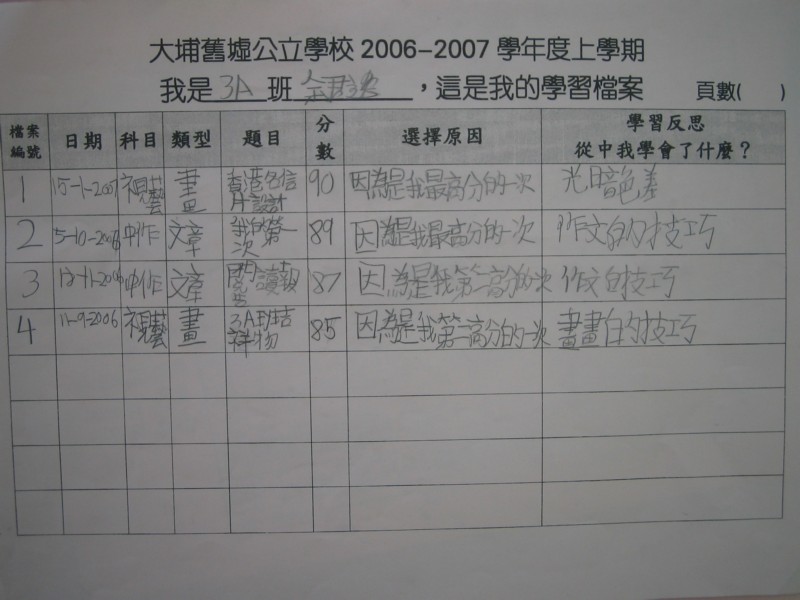 大埔舊墟公立學校 2006-2007 學年度上學期
我是 3A 班 ，這是我的學習檔案 頁數( )
檔案編號 日期 科目 類型 題目 分數 選擇原因 學習反思 從中我學會了什麼？
1 15-1-2007 視藝 畫 香港名信片設計 90 因為是我最高分的一次 光暗色差
2 5-10-2006 中作 文章 我的第一次 89 因為是我最高分的一次 作文的技巧
3 12-11-2006 中作 文章 閱讀報告 87 因為是我第二高分的一次 作文的技巧
4 11-9-2006 視藝 畫 3A班吉祥物 85 因為是我第二高分的一次 畫畫的技巧